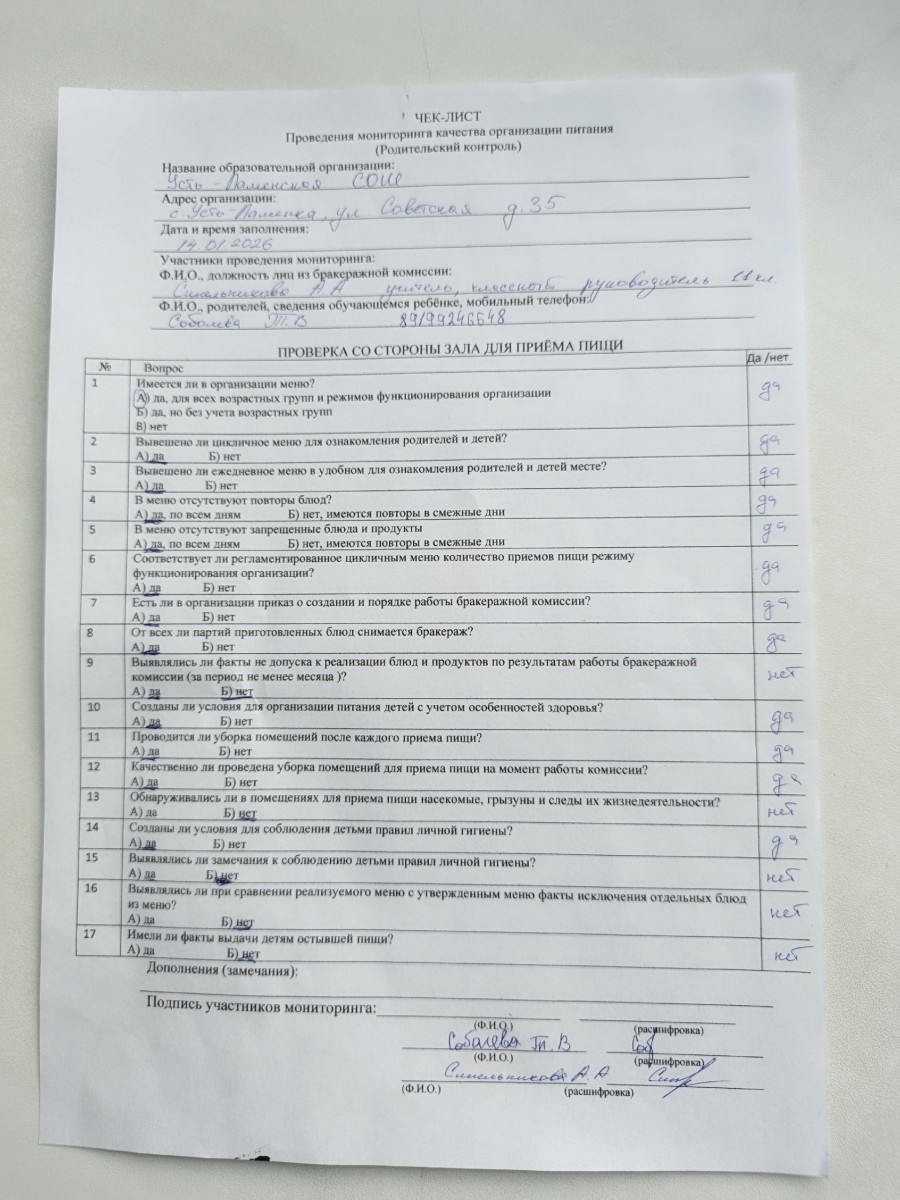 ЧЕК-ЛИСТ
Проведения мониторинга качества организации питания
(Родительский контроль)
Название образовательной организации:
Усть-Ламенская СОШ
Адрес организации:
с. Усть-Ламенка, ул Советская д.35
Дата и время заполнения:
14.01.2026
Участники проведения мониторинга:
Ф.И.О., должность лиц из бракеражной комиссии:
Синельникова А.А учитель, классный руководитель 11 кл.
Ф.И.О., родителей, сведения обучающемся ребёнке, мобильный телефон:
Соболева Т.В 89199246648
ПРОВЕРКА СО СТОРОНЫ ЗАЛА ДЛЯ ПРИЁМА ПИЩИ
№ Вопрос Да /нет
1 Имеется ли в организации меню? да
А) да, для всех возрастных групп и режимов функционирования организации
Б) да, но без учета возрастных групп
В) нет
2 Вывешено ли цикличное меню для ознакомления родителей и детей? да
А) да Б) нет
3 Вывешено ли ежедневное меню в удобном для ознакомления родителей и детей месте? да
А) да Б) нет
4 В меню отсутствуют повторы блюд? да
А) да, по всем дням Б) нет, имеются повторы в смежные дни
5 В меню отсутствуют запрещенные блюда и продукты да
А) да, по всем дням Б) нет, имеются повторы в смежные дни
6 Соответствует ли регламентированное цикличным меню количество приемов пищи режиму да
функционирования организации?
А) да Б) нет
7 Есть ли в организации приказ о создании и порядке работы бракеражной комиссии? да
А) да Б) нет
8 От всех ли партий приготовленных блюд снимается бракераж? да
А) да Б) нет
9 Выявлялись ли факты не допуска к реализации блюд и продуктов по результатам работы бракеражной нет
комиссии (за период не менее месяца )?
А) да Б) нет
10 Созданы ли условия для организации питания детей с учетом особенностей здоровья? да
А) да Б) нет
11 Проводится ли уборка помещений после каждого приема пищи? да
А) да Б) нет
12 Качественно ли проведена уборка помещений для приема пищи на момент работы комиссии? да
А) да Б) нет
13 Обнаруживались ли в помещениях для приема пищи насекомые, грызуны и следы их жизнедеятельности? нет
А) да Б) нет
14 Созданы ли условия для соблюдения детьми правил личной гигиены? да
А) да Б) нет
15 Выявлялись ли замечания к соблюдению детьми правил личной гигиены? нет
А) да Б) нет
16 Выявлялись ли при сравнении реализуемого меню с утвержденным меню факты исключения отдельных блюд нет
из меню?
А) да Б) нет
17 Имели ли факты выдачи детям остывшей пищи? нет
А) да Б) нет
Дополнения (замечания):
Подпись участников мониторинга:
(Ф.И.О.) (расшифровка)
Соболева Т.В Соб
(Ф.И.О.) (расшифровка)
Синельникова А.А
(Ф.И.О.) (расшифровка)